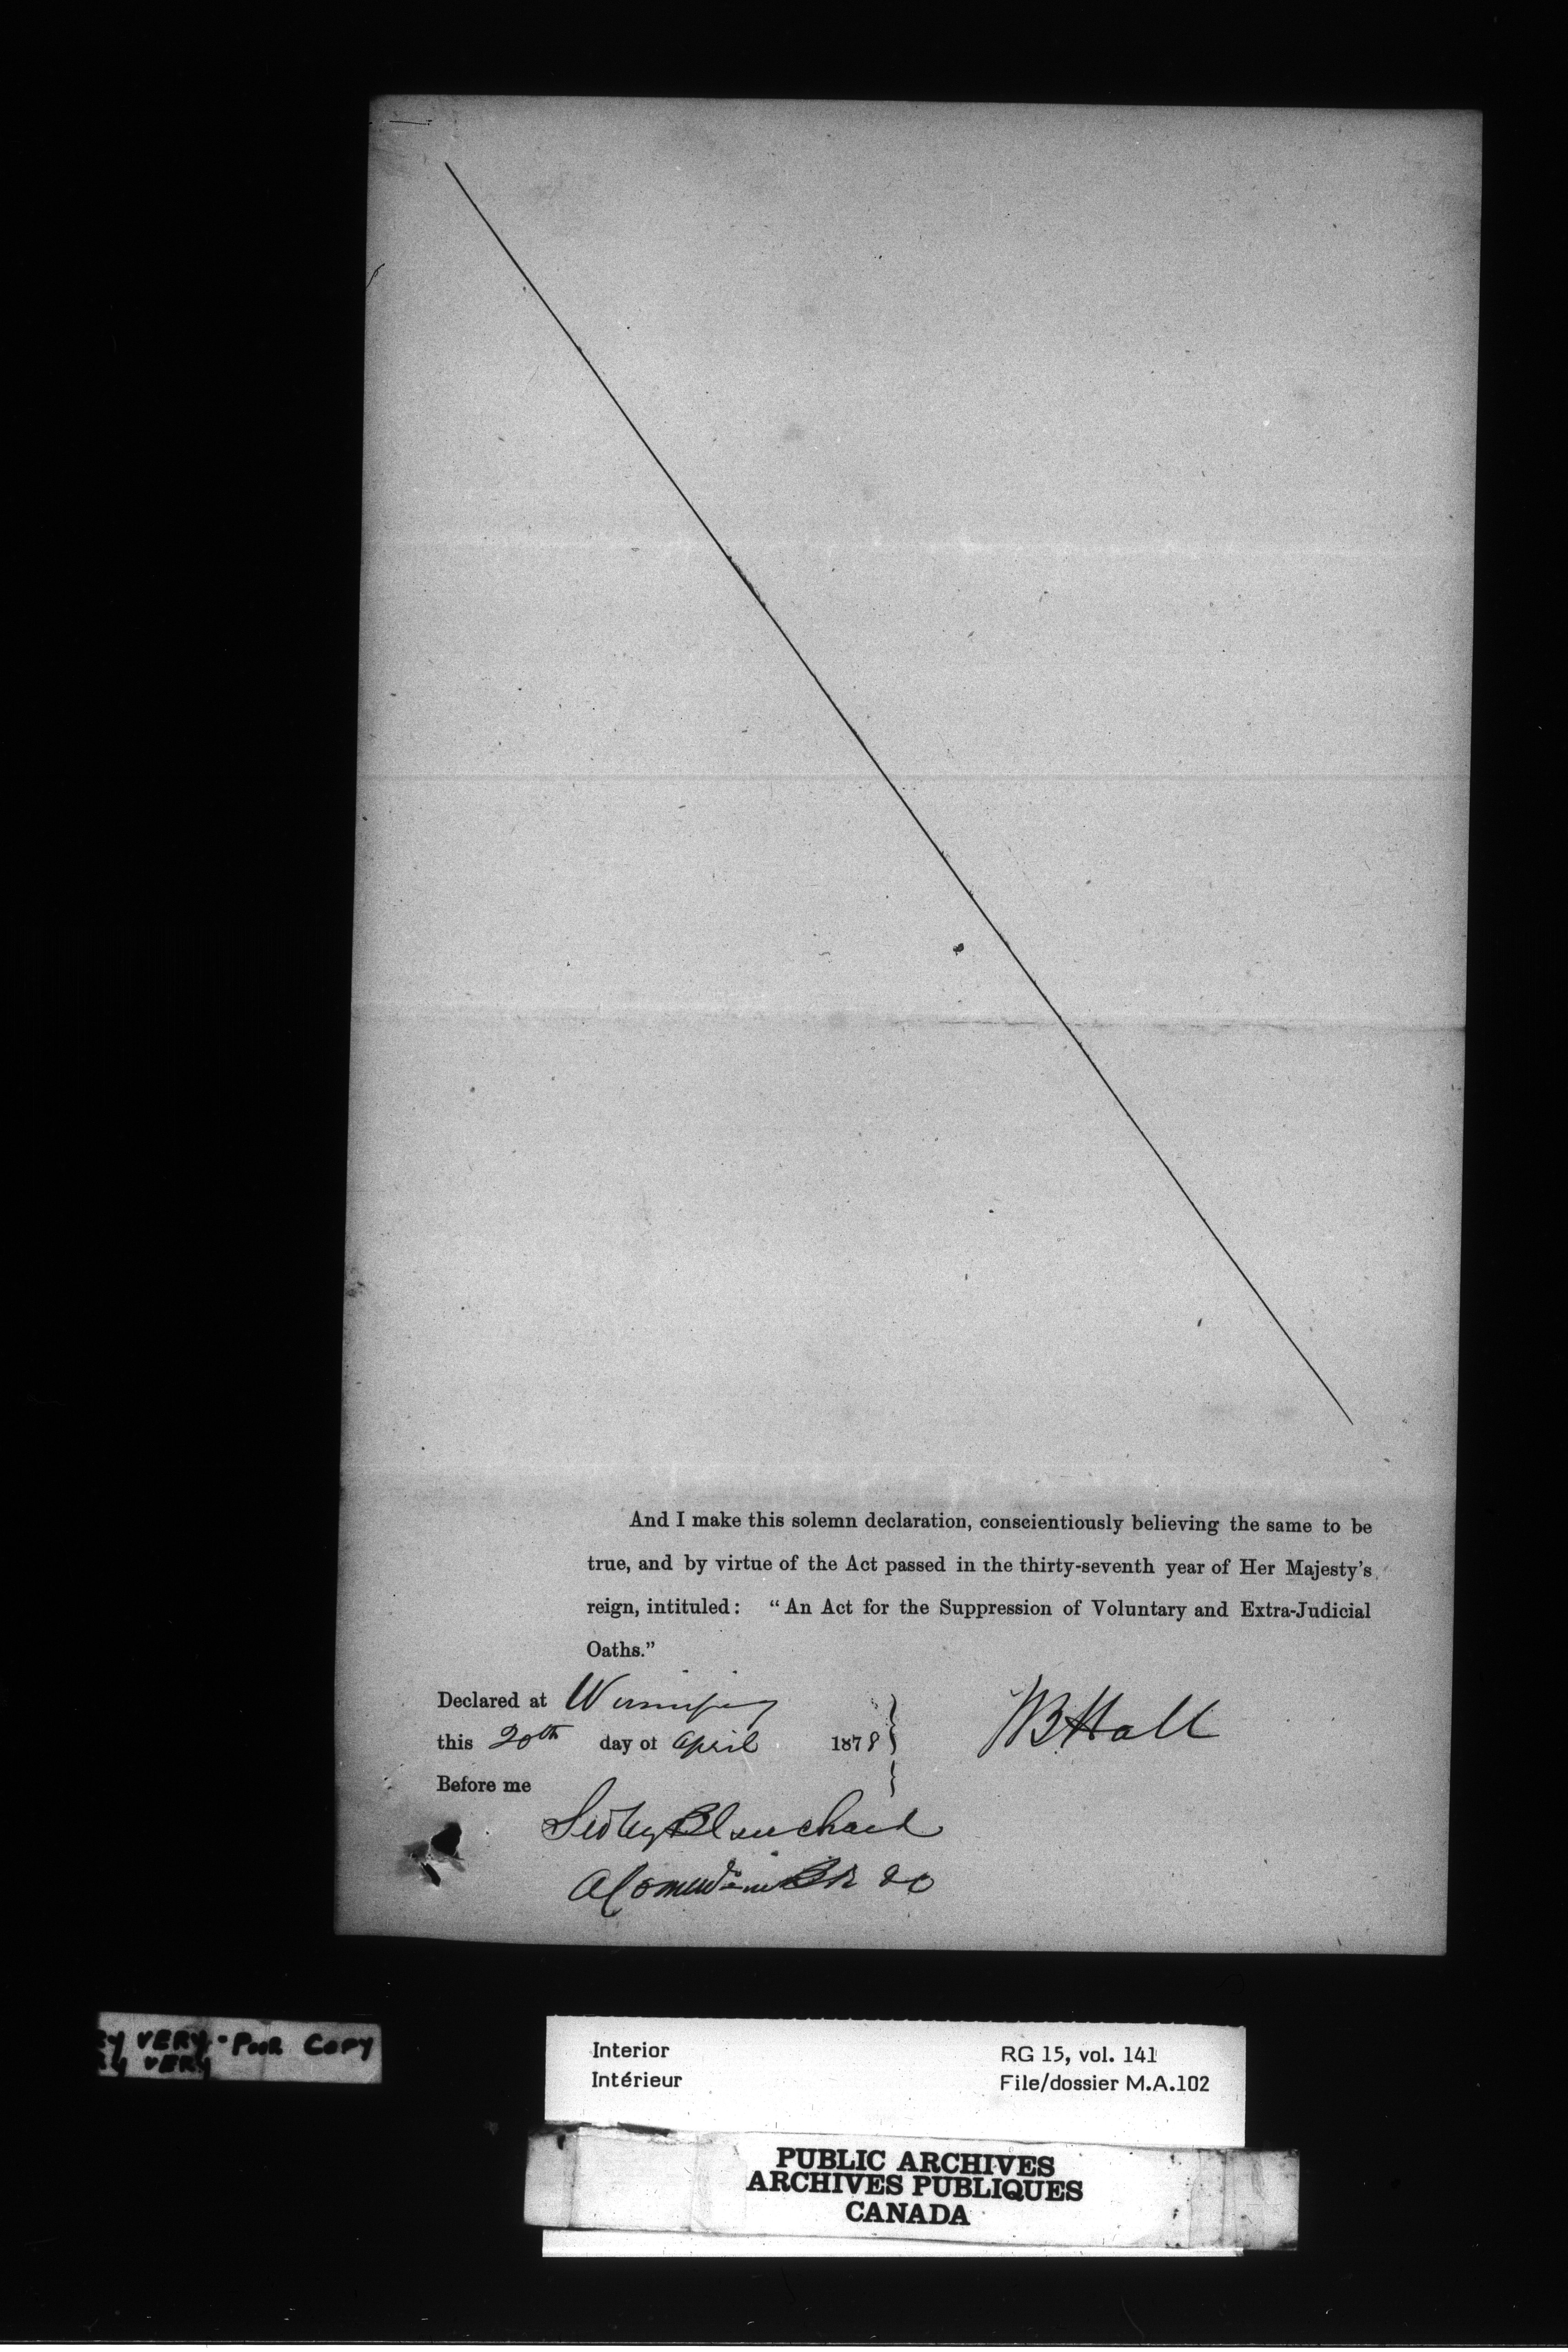 And I make this solemn declaration, conscientiously believing the same to be
true, and by virtue of the Act passed in the thirty-seventh year of Her Majesty's
reign, intituled: "An Act for the Suppression of Voluntary and Extra-Judicial
Oaths."
Declared at Winnipeg
this 20th day of April 1878
Before me
WB Hall
Sedley Blanchard
A Comr in BR &c
EY VERY-POOR COPY
RY VERY
Interior
Intérieur
RG 15, vol. 141
File/dossier M.A.102
PUBLIC ARCHIVES
ARCHIVES PUBLIQUES
CANADA